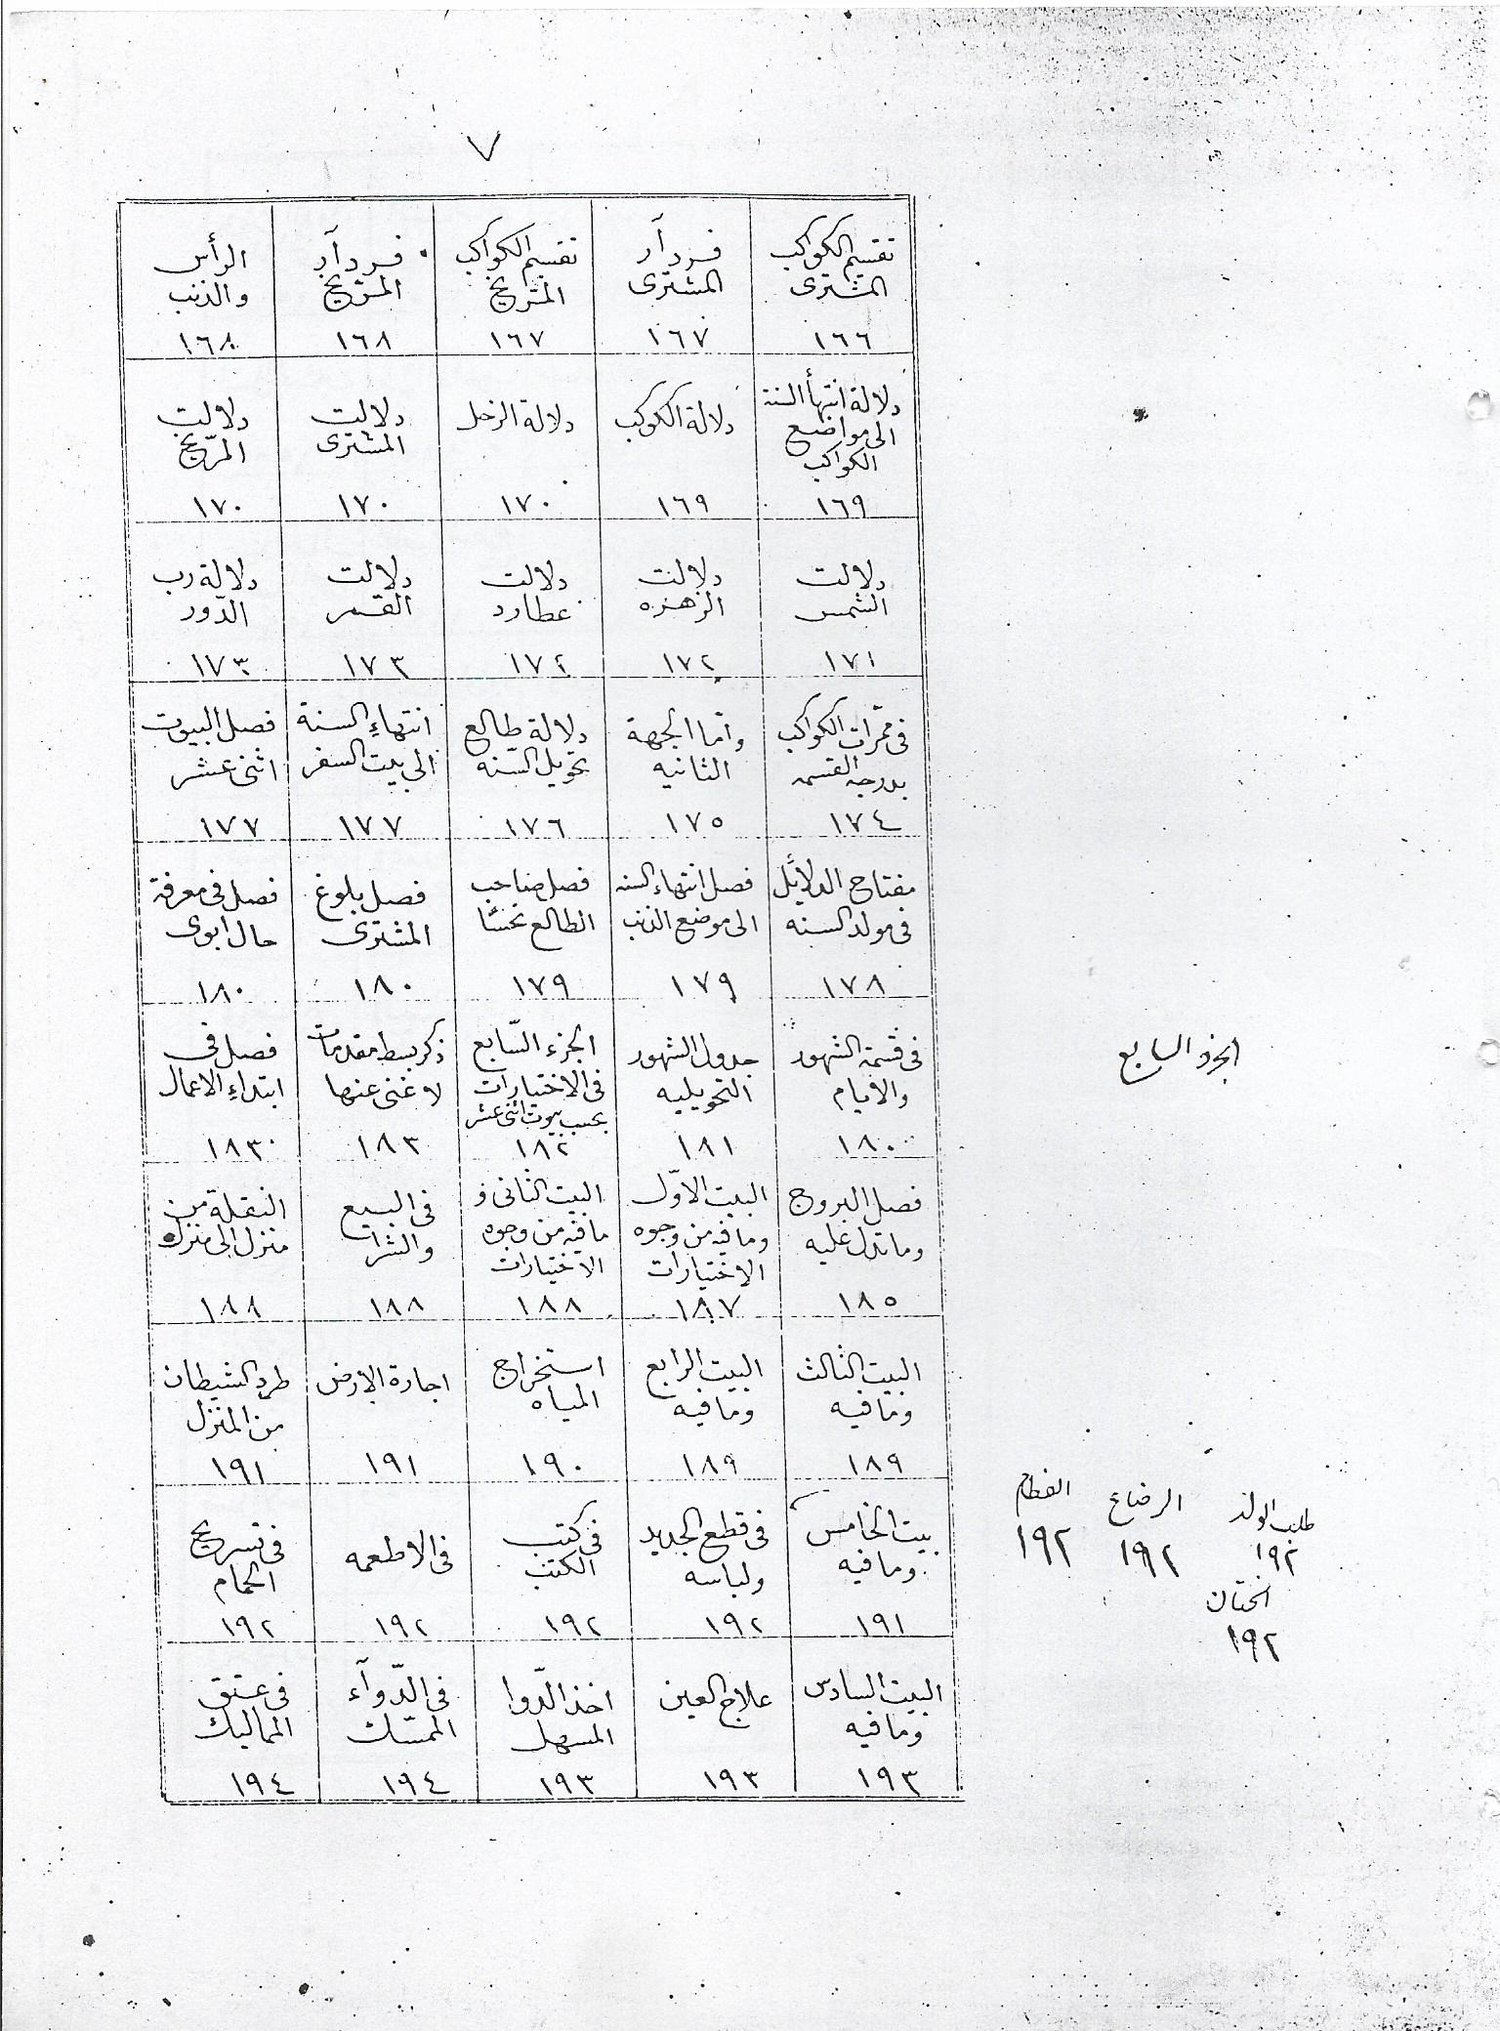 ٧
تقسيم الكواكب المشترى ١٦٦
فردآر المشترى ١٦٧
تقسيم الكواكب المريخ ١٦٧
فردآر المريخ ١٦٨
الرأس والذنب ١٦٨
دلالة انتهأ السنة الى مواضع الكواكب ١٦٩
دلالة الكوكب ١٦٩
دلالة الزحل ١٧٠
دلالت المشترى ١٧٠
دلالت المرّيخ ١٧٠
دلالت الشمس ١٧١
دلالت الزهره ١٧٢
دلالت عطارد ١٧٢
دلالت القمر ١٧٣
دلالة رب الدّور ١٧٣
فى ممّرات الكواكب بدرجه القسمه ١٧٤
وأمّا الجهة الثانيه ١٧٥
دلالة طالع تحويل السّنه ١٧٦
انتهاءِ السنة الى بيت السفر ١٧٧
فصل البيوت اثنى عشر ١٧٧
مفتاح الدلائل فى مولد السنه ١٧٨
فصل انتهاء السنه الى موضع الذنب ١٧٩
فصل صاحب الطالع نحسًا ١٧٩
فصل بلوغ المشترى ١٨٠
فصل فى معرفة حال ابوى ١٨٠
فى قسمة الشهور والأيام ١٨٠
جدول الشهور التحويليه ١٨١
الجزء السّابع فى الاختيارات بحسب بيوت اثنى عشر ١٨٢
ذكر بسط مقدمات لا غنى عنها ١٨٣
فصل فى ابتداءِ الاعمال ١٨٣
الجزء السابع
فصل البروج وما تدل عليه ١٨٥
البيت الاوّل وما فيه من وجوه الاختيارات ١٨٧
البيت الثانى و ما فيه من وجوه الاختيارات ١٨٨
فى البيع والشرا ١٨٨
النقلة من منزل الى منزل ١٨٨
البيت الثالث وما فيه ١٨٩
البيت الرابع وما فيه ١٨٩
استخراج المياه ١٩٠
اجارة الارض ١٩١
طرد الشيطان من المنزل ١٩١
بيت الخامس وما فيه ١٩١
فى قطع الجديد ولباسه ١٩٢
فى كتب الكتب ١٩٢
فى الاطعمه ١٩٢
فى تسريح الحمام ١٩٢
طلب الولد ١٩٢
الرضاع ١٩٢
الفطام ١٩٢
الختان ١٩٢
البيت السادس وما فيه ١٩٣
علاج العين ١٩٣
اخذ الدّوا المسهل ١٩٣
فى الدّوآء الممسّك ١٩٤
فى عتق المماليك ١٩٤